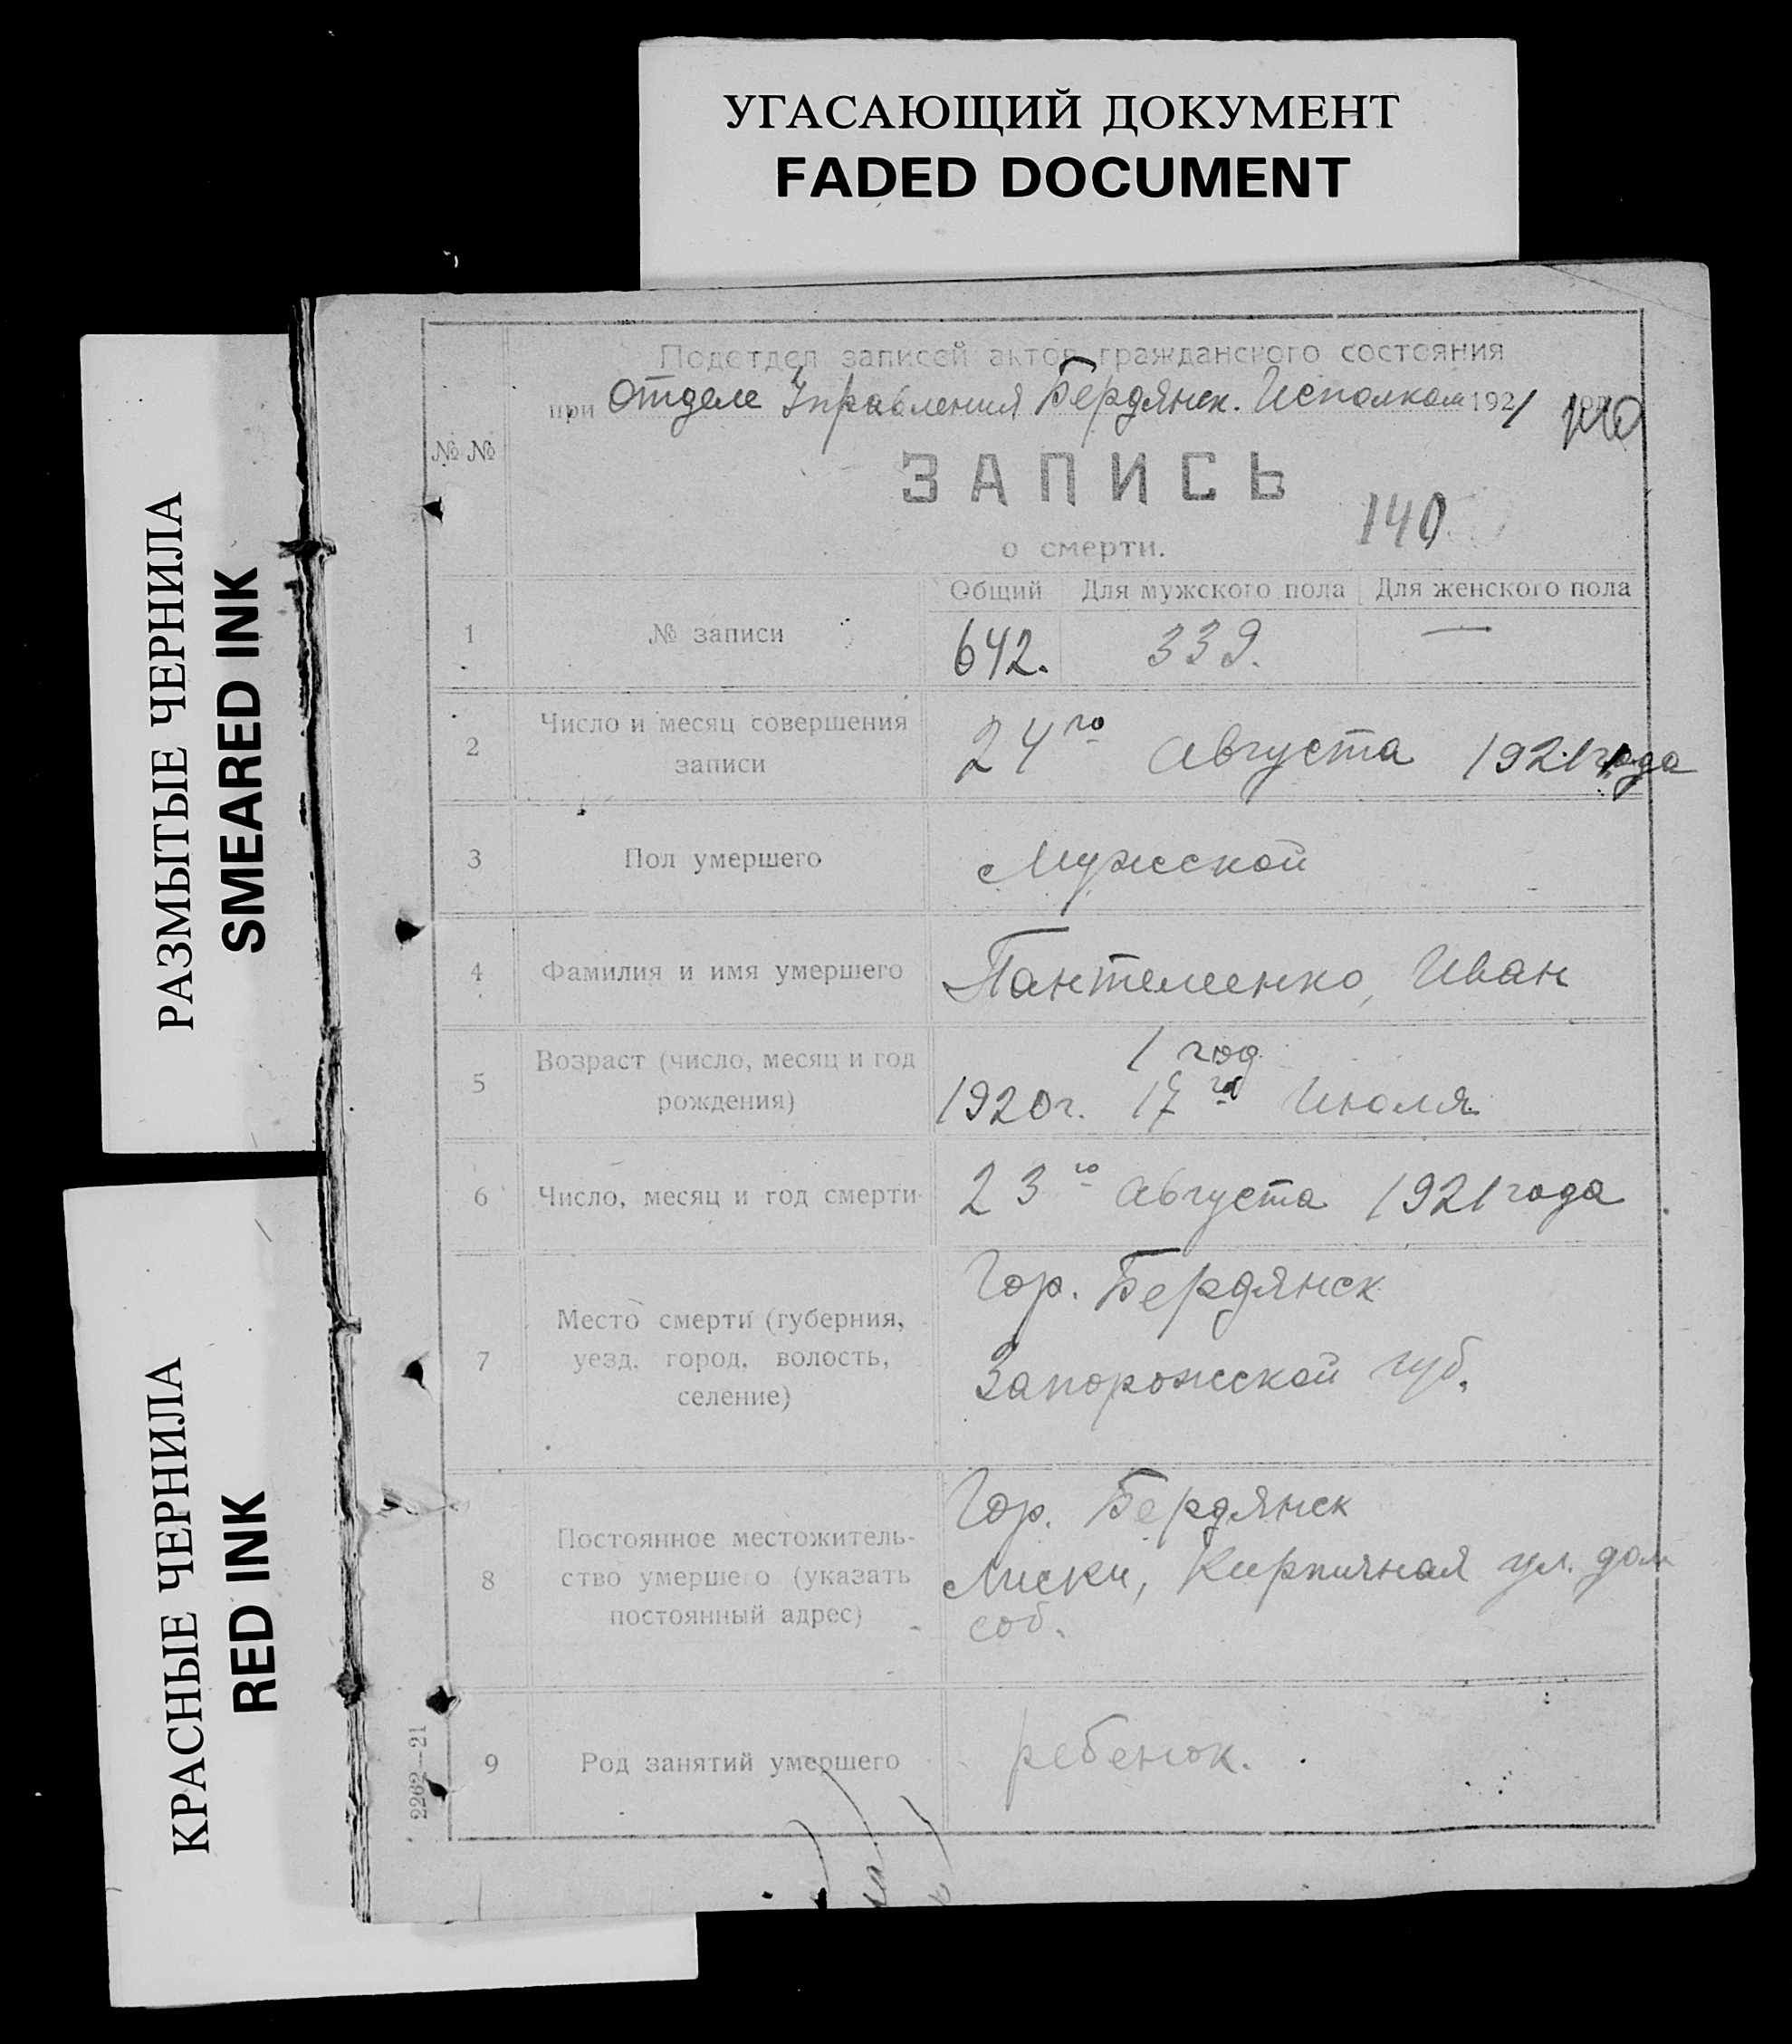 УГАСАЮЩИЙ ДОКУМЕНТ
FADED DOCUMENT
РАЗМЫТЫЕ ЧЕРНИЛА
SMEARED INK
КРАСНЫЕ ЧЕРНИЛА
RED INK
Подотдел записей актов гражданского состояния
при Отделе Управления Бердянск. Исполком 1921 год
№ №
ЗАПИСЬ
140
о смерти.
Общий Для мужского пола Для женского пола
1 № записи 642. 339. —
2 Число и месяц совершения записи 24го Августа 1921 года
3 Пол умершего Мужской
4 Фамилия и имя умершего Пантелеенко, Иван
5 Возраст (число, месяц и год рождения) 1 год
1920г. 17го Июля
6 Число, месяц и год смерти 23го Августа 1921 года
7 Место смерти (губерния, уезд, город, волость, селение) Гор. Бердянск
Запорожской губ.
8 Постоянное местожитель-
ство умершего (указать
постоянный адрес)
Гор. Бердянск
Лиски, Кирпичная ул. дом
соб.
9 Род занятий умершего ребенок.
2262—21